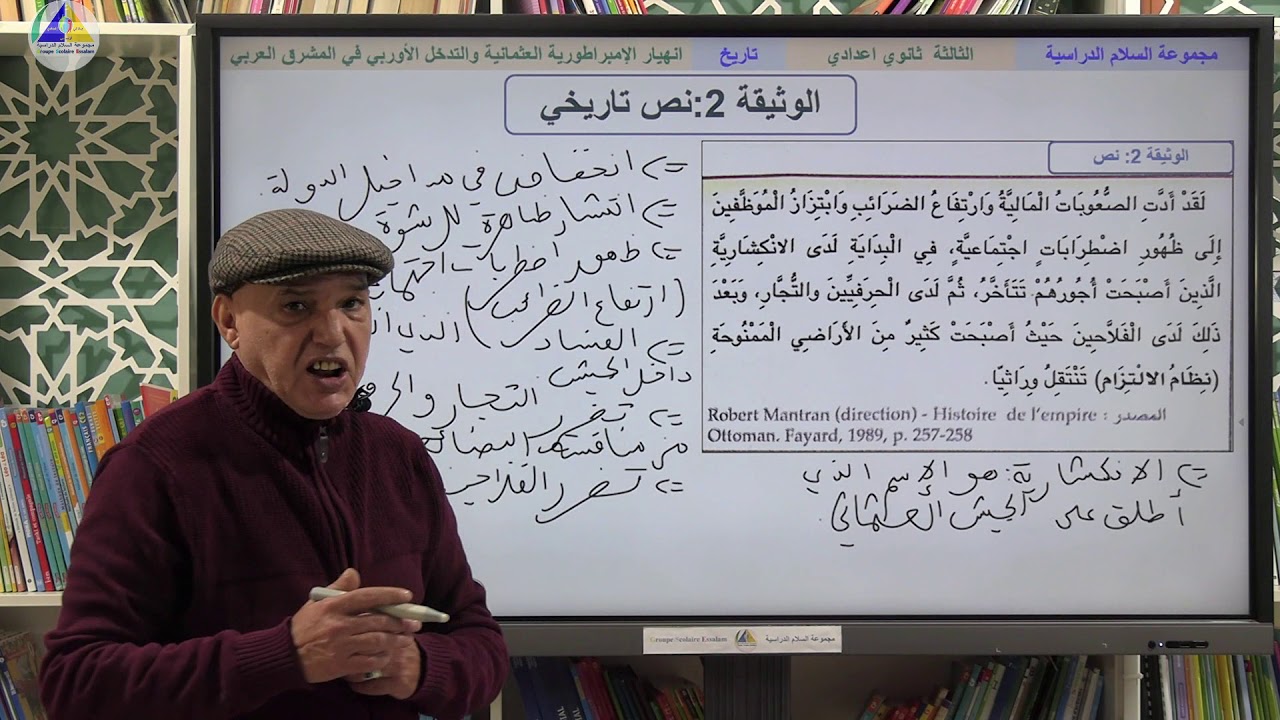 مجموعة السلام الدراسية
Groupe Scolaire Essalam
مجموعة السلام الدراسية الثالثة ثانوي اعدادي تاريخ انهيار الإمبراطورية العثمانية والتدخل الأوربي في المشرق العربي
الوثيقة 2:نص تاريخي
الوثيقة 2: نص
لَقَدْ أَدَّتِ الصُّعُوبَاتُ الْمَالِيَّةُ وَارْتِفَاعُ الضَرَائِبِ وَابْتِزَازُ الْمُوَظَّفِينَ
إِلَى ظُهُورِ اضْطِرَابَاتٍ اجْتِمَاعِيَّةٍ، فِي الْبِدَايَةِ لَدَى الانْكِشَارِيَّةِ
الَّذِينَ أَصْبَحَتْ أُجُورُهُمْ تَتَأَخَّرُ، ثُمَّ لَدَى الْحِرَفِيِّينَ والتُّجَّارِ، وَبَعْدَ
ذَلِكَ لَدَى الْفَلاَّحِينَ حَيْثُ أَصْبَحَتْ كَثِيرٌ مِنَ الأَرَاضِي الْمَمْنُوحَةِ
(نِظَامُ الالْتِزَامِ) تَنْتَقِلُ وِرَاثِيًا.
المصدر : Robert Mantran (direction) - Histoire de l'empire
Ottoman. Fayard, 1989, p. 257-258
=> الانكشارية: هو الاسم الذي
أطلق على الجيش العثماني.
=> انخفاض في مداخيل الدولة.
=> انتشار ظاهرة الرشوة
=> ظهور اضطرابات
(ارتفاع الضرائب)
=> الفساد الذي
داخل الجيش
=> تضرر التجار
من منافسة البضائع
=> تضرر الفلاحين
Groupe Scolaire Essalam مجموعة السلام الدراسية